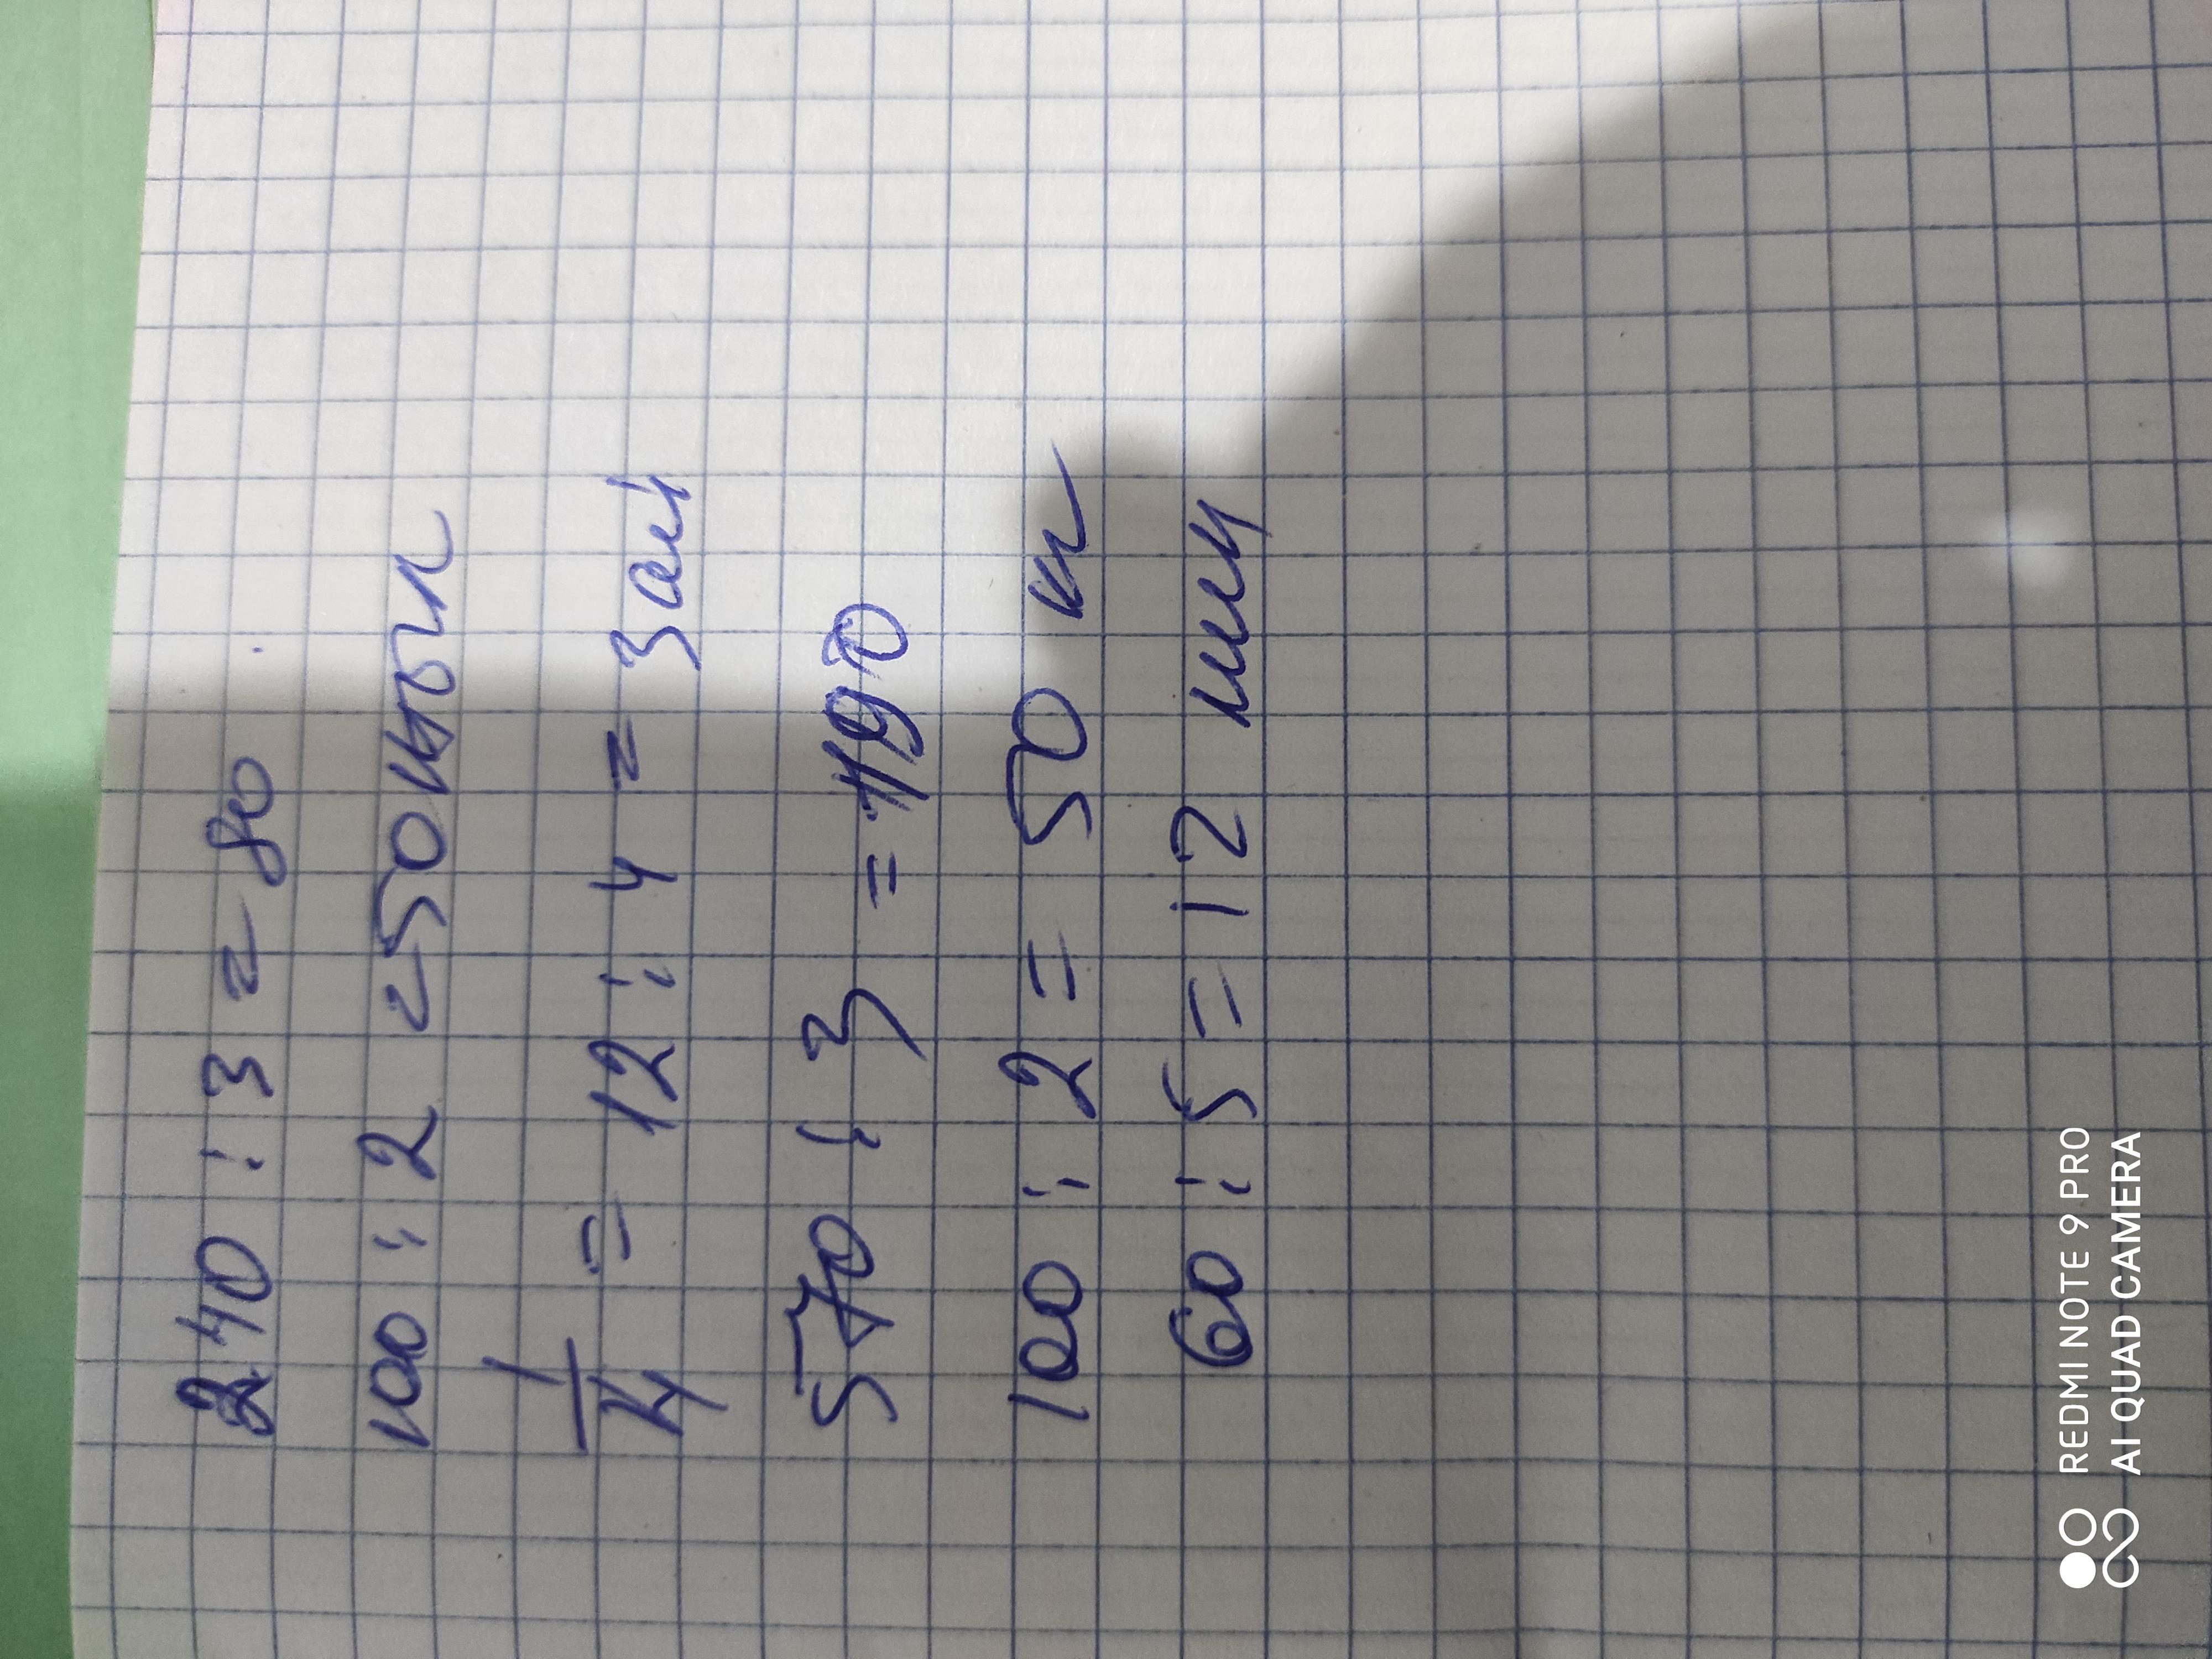 240 : 3 = 80
100 : 2 = 50
1/4 = 12 : 4 = 3
570 : 3 = 190
100 : 2 = 50 к
60 : 5 = 12 мин
REDMI NOTE 9 PRO
AI QUAD CAMERA